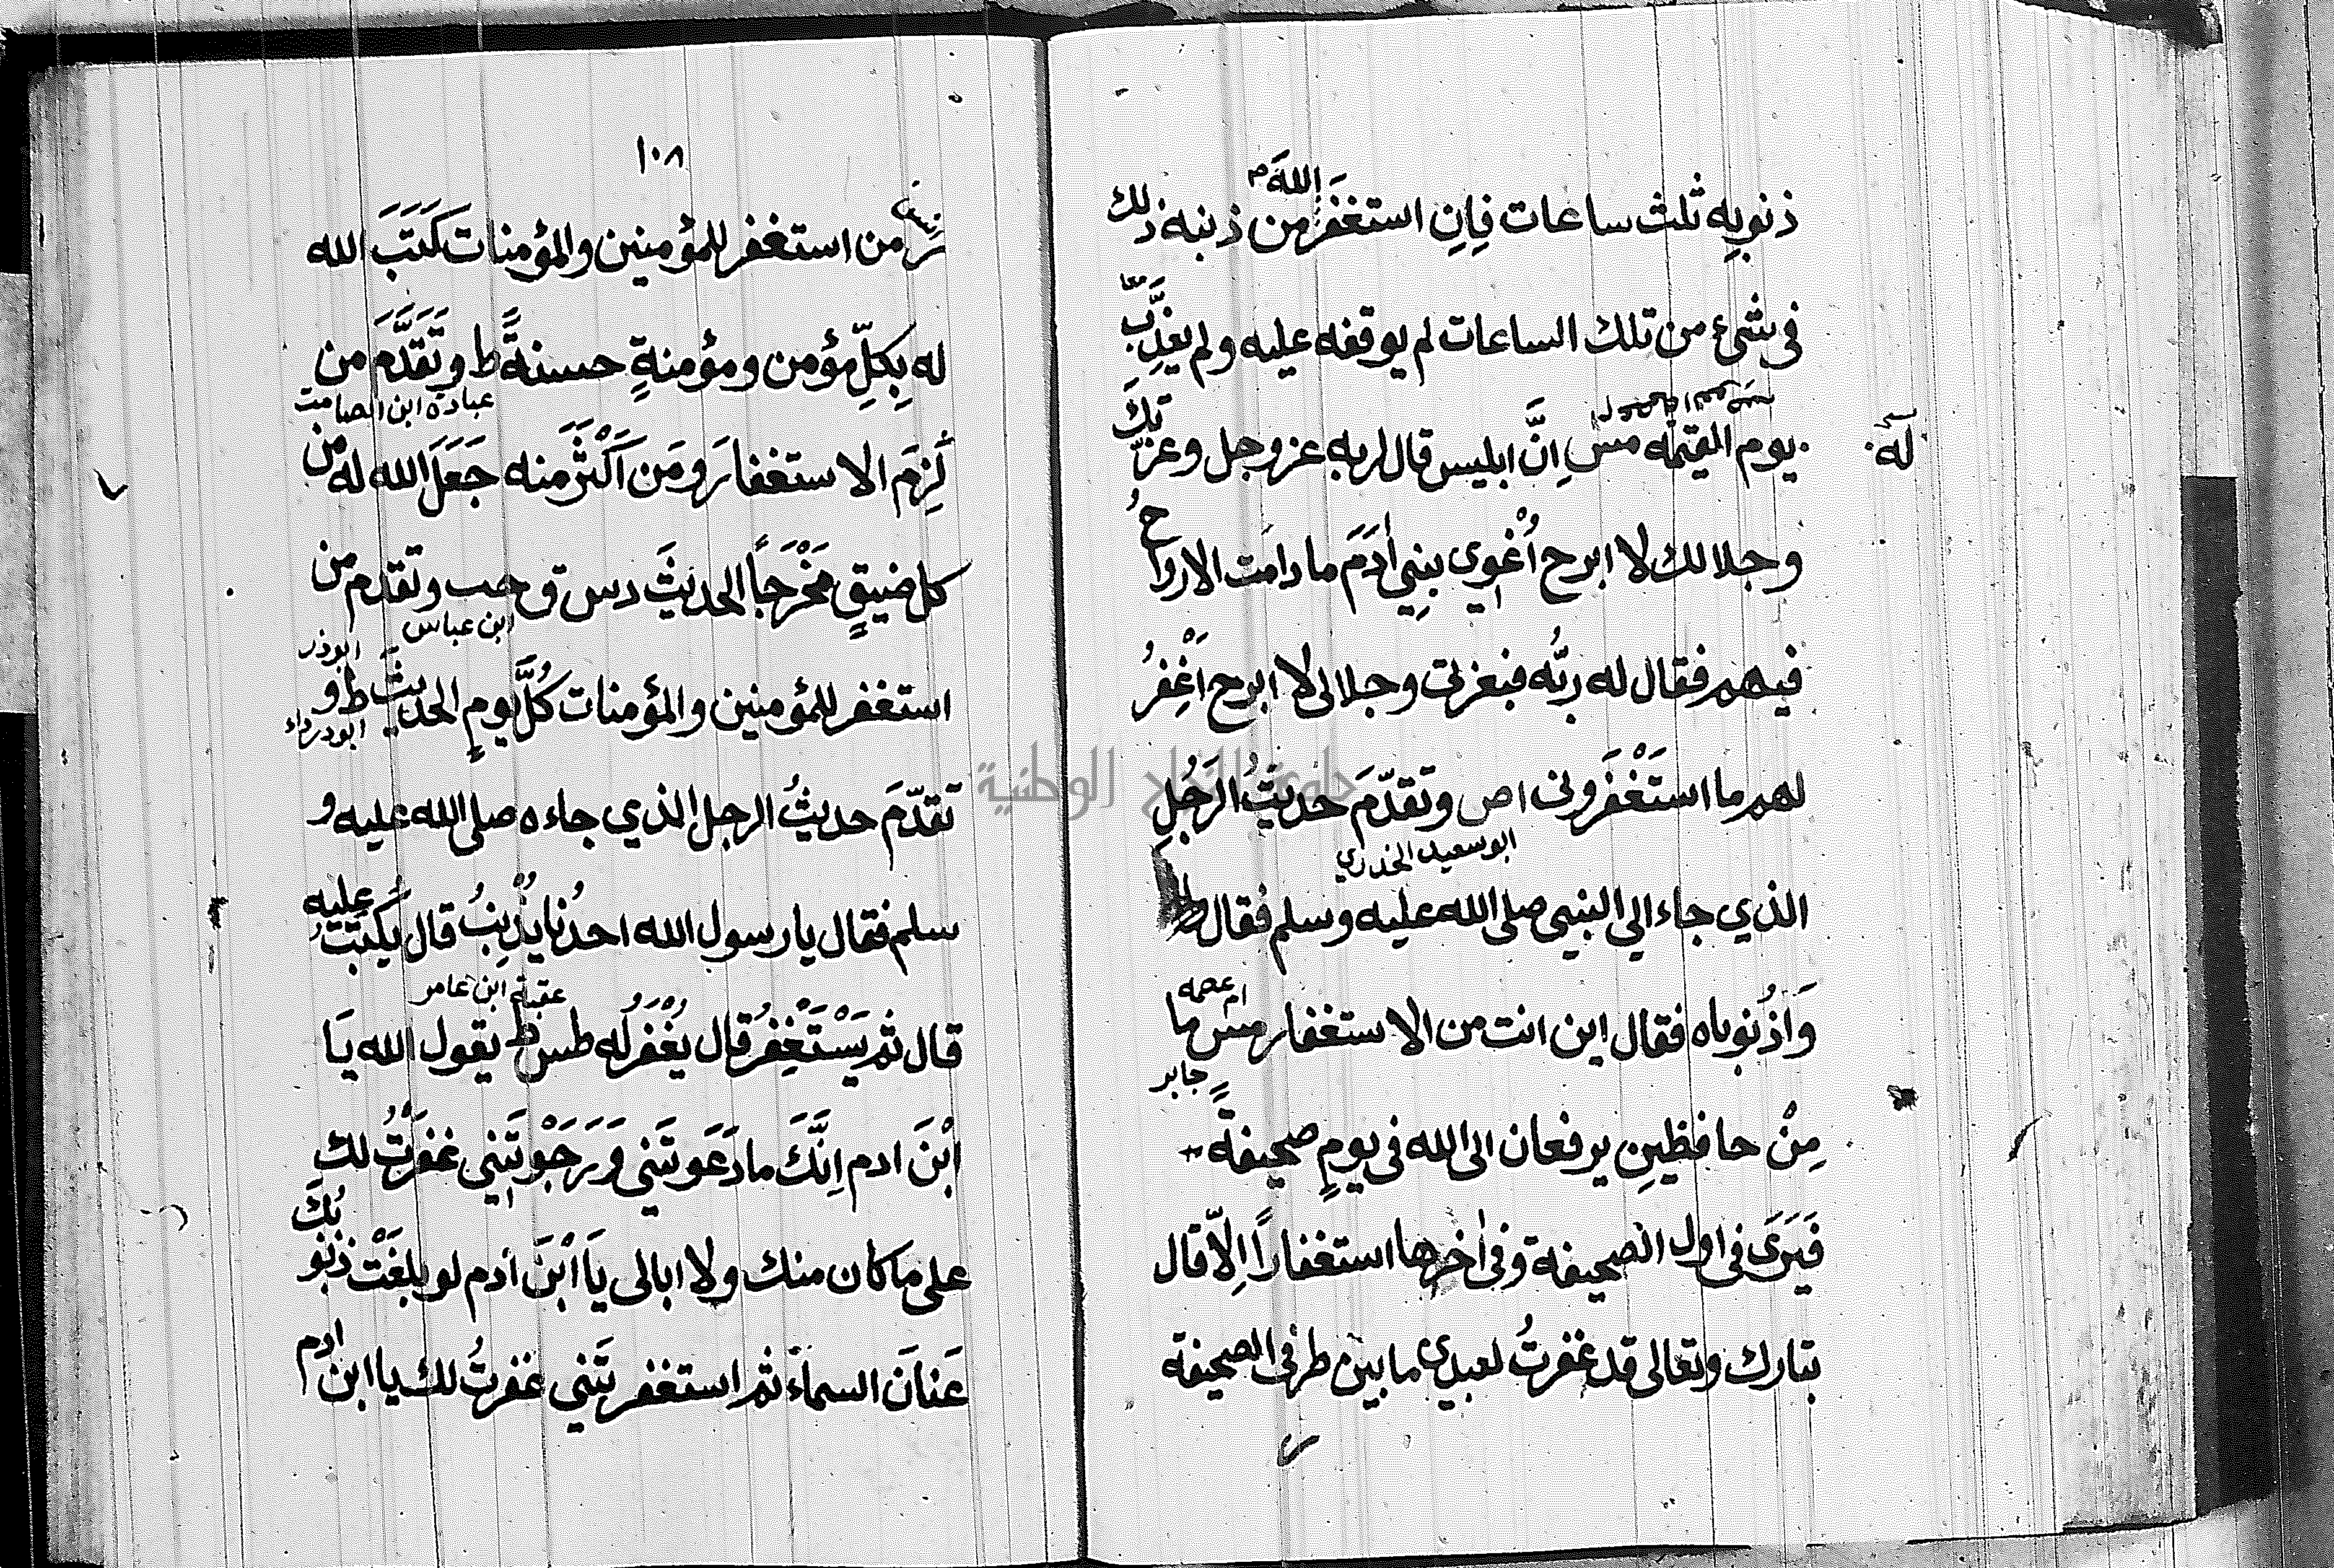 ذنوبِه ثلث ساعات فإنِ استغفَرَ اللهَ من ذنبه ذلك
في شئ من تلك الساعات لم يوقفه عليه ولم يعذَّب
يوم القيمه مس اِنَّ ابليس قال لربه عز وجل وعزتك
له
وجلالك لا ابرح اُغْوِي بنِي اٰدَمَ ما دامَت الارواحُ
فيهم فقال له ربُّه فبعزتي وجلالى لا ابرح اَغْفِرُ
لهم ما استَغْفَرَونى اص وتقدّمَ حديثُ الرَجُلِ
ابو سعيد الخدري
الذي جاء الي النبي صلى الله عليه وسلم فقال
وَاذُنوباه فقال اين انت من الاستغفار مس ما
ام عصمه
جابر
مِنْ حافظينِ يرفعان الى الله فى يومٍ صحيفةً
فَيَرَى فى اول الصحيفة وفى اٰخرها استغفارًا اِلّا قال
تبارك وتعالى قد غفرتُ لعبدي ما بين طرفى الصحيفة
١٠٨
ر من استغفر للمؤمنين والمؤمنات كَتَبَ الله
له بِكلِّ مؤمن ومؤمنةٍ حسنةً ط وتَقَدَّمَ من
عبادة ابن الصامت
لَزِمَ الاستغفارَ ومَن اَكْثَرَ منه جَعَلَ الله له من
كل ضيقٍ مَخْرَجًا الحديثَ د س ق حب وتقدم من
ابن عباس
ابوذر
استغفر للمؤمنين والمؤمنات كُلَّ يومٍ الحديثَ ط و
ابودرداء
تقدّمَ حديثُ الرجل الذي جاءه صلى الله عليه و
سلم فقال يا رسول الله احدُنا يُذْنِبُ قال يُكتَبُ عليه
قال ثم يَسْتَغْفِرُ قال يُغْفَرُ له طس ط يقول الله يَا
عقبة ابن عامر
ابْنَ ادم اِنَّكَ ما دَعَوتَني وَرَجَوْتَني غفَرْتُ لك
على ما كان منك ولا ابالى يَا ابْنَ اٰدم لو بلغَتْ ذنوبُك
عَنانَ السماء ثم استغفرتَني غفرتُ لك يا ابن ادم
جامعة النجاح الوطنية